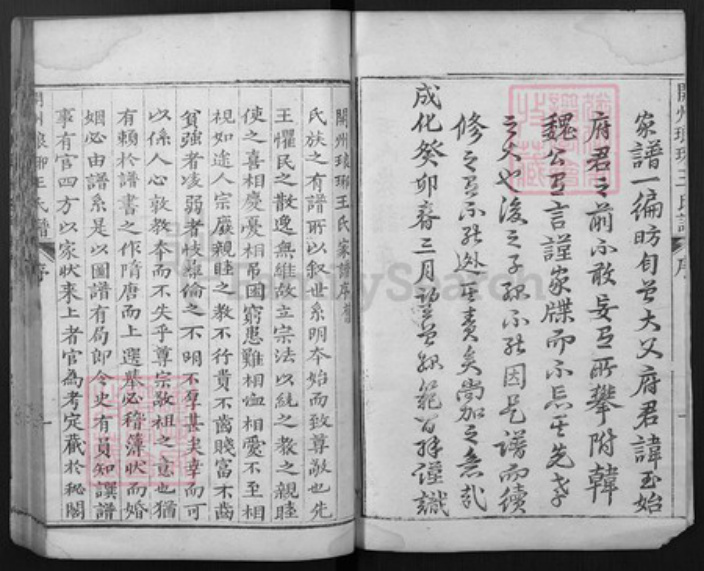 家譜一編昉自曾大父府君諱玉始
府君之前不敢妄有所攀附韓
魏公有言謹家牒而不忘其先者
之大也後之子孫不能因是譜而續
修之有不能逃其責矣尚加之意哉
成化癸卯春三月望曾孫範百拜謹識
開州瑯琊王氏譜 序
開州瑯琊王氏家譜序
氏族之有譜所以叙世系明本始而致尊敬也先
王懼民之散逸無維故立宗法以統之教之親睦
使之喜相慶憂相弔困窮患難相恤相愛不至相
視如途人宗廢親睦之教不行貴不齒賤富不齒
貧強者凌弱者倫之不明不孚甚矣幸而可
以係人心敦教本而不失乎尊宗敬祖之意也猶
有賴於譜書之作隋唐而上選舉必稽簿狀而婚
姻必由譜系是以圖譜有局郎令史有員知譔譜
事有官四方以家狀来上者官為考定藏於秘閣
開州瑯琊王氏譜 序
FamilySearch